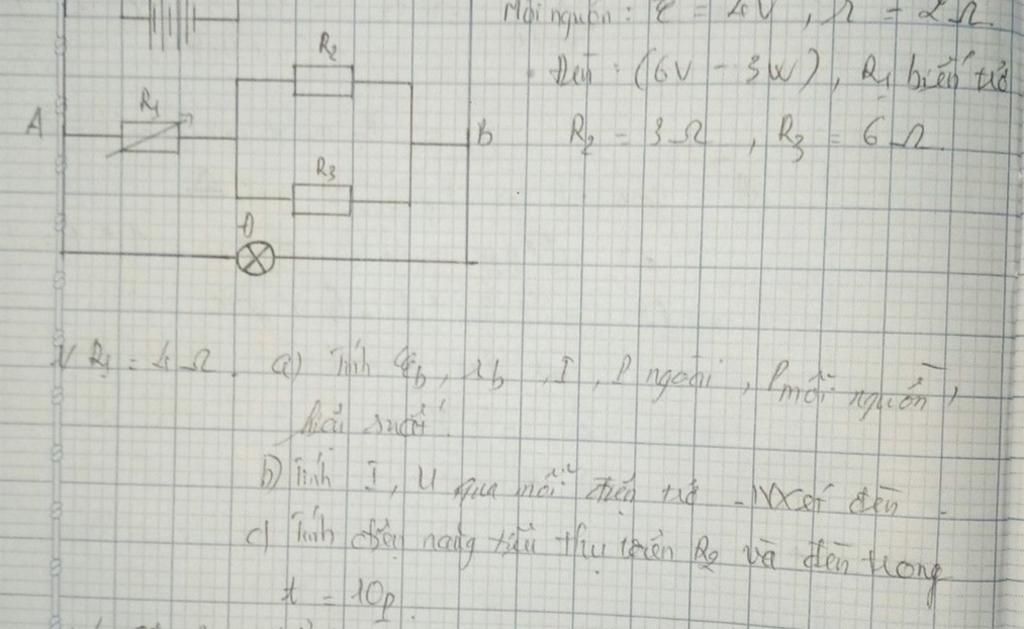 Mỗi nguồn : ξ = 4V , r = 2 Ω
Đèn : (6V - 3W) , R₁ biến trở
R₂ = 3 Ω , R₃ = 6 Ω
R₂
R₁
A
B
R₃
Đ
R₁ = 4 Ω . a) Tính ξb , rb , I , P ngoài , P mỗi nguồn ,
hiệu suất .
b) Tính I , U qua mỗi điện trở - NX đèn .
c) Tính điện năng tiêu thụ trên R₂ và đèn trong
t = 10p